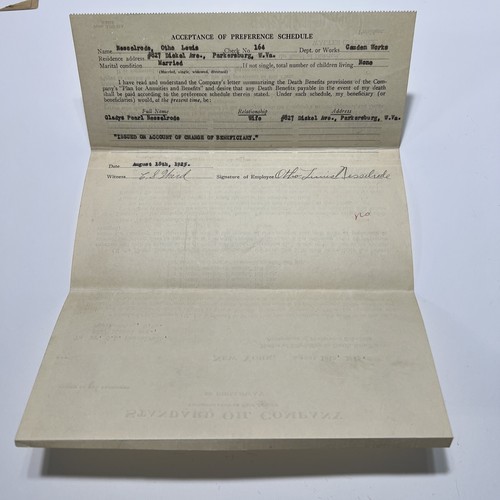 ACCEPTANCE OF PREFERENCE SCHEDULE
Name Resselrode, Otho Lewis Check No. 164 Dept. or Works Camden Works
Residence address #827 Dickel Ave., Parkersburg, W.Va.
Marital condition Married If not single, total number of children living None
(Married, single, widowed, divorced)
I have read and understand the Company's letter summarizing the Death Benefits provisions of the Company's "Plan for Annuities and Benefits" and desire that any Death Benefits payable in the event of my death shall be paid according to the preference schedule therein stated. Under such schedule, my beneficiary (or beneficiaries) would, at the present time, be:
Full Name Relationship Address
Gladys Pearl Resselrode Wife #827 Dickel Ave., Parkersburg, W.Va.
"ISSUED ON ACCOUNT OF CHANGE OF BENEFICIARY."
Date August 15th, 1929.
Witness Signature of Employee Otho Lewis Resselrode
STANDARD OIL COMPANY